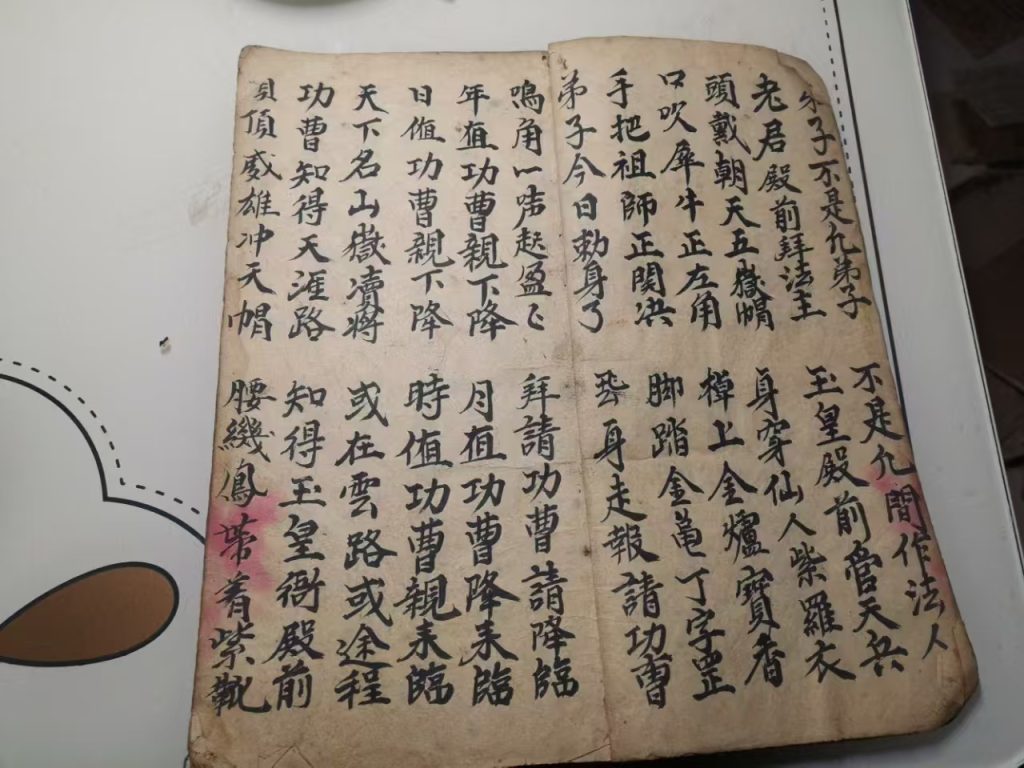 弟子不是凢弟子 不是凢間作法人
老君殿前拜法主 玉皇殿前管天兵
頭戴朝天五嶽帽 身穿仙人紫羅衣
口吹犀牛正左角 樟上金爐寶香
手把祖師正関决 脚踏金亀丁字罡
弟子今日勅身了 身走報請功曹
鳴角一声起盈〻 拜請功曹請降臨
年值功曹親下降 月值功曹降来臨
日值功曹親下降 時值功曹親来臨
天下名山嶽瀆將 或在雲路或途程
功曹知得天涯路 知得玉皇衙殿前
頂威雄冲天帽 腰纔鳳帶着紫靴